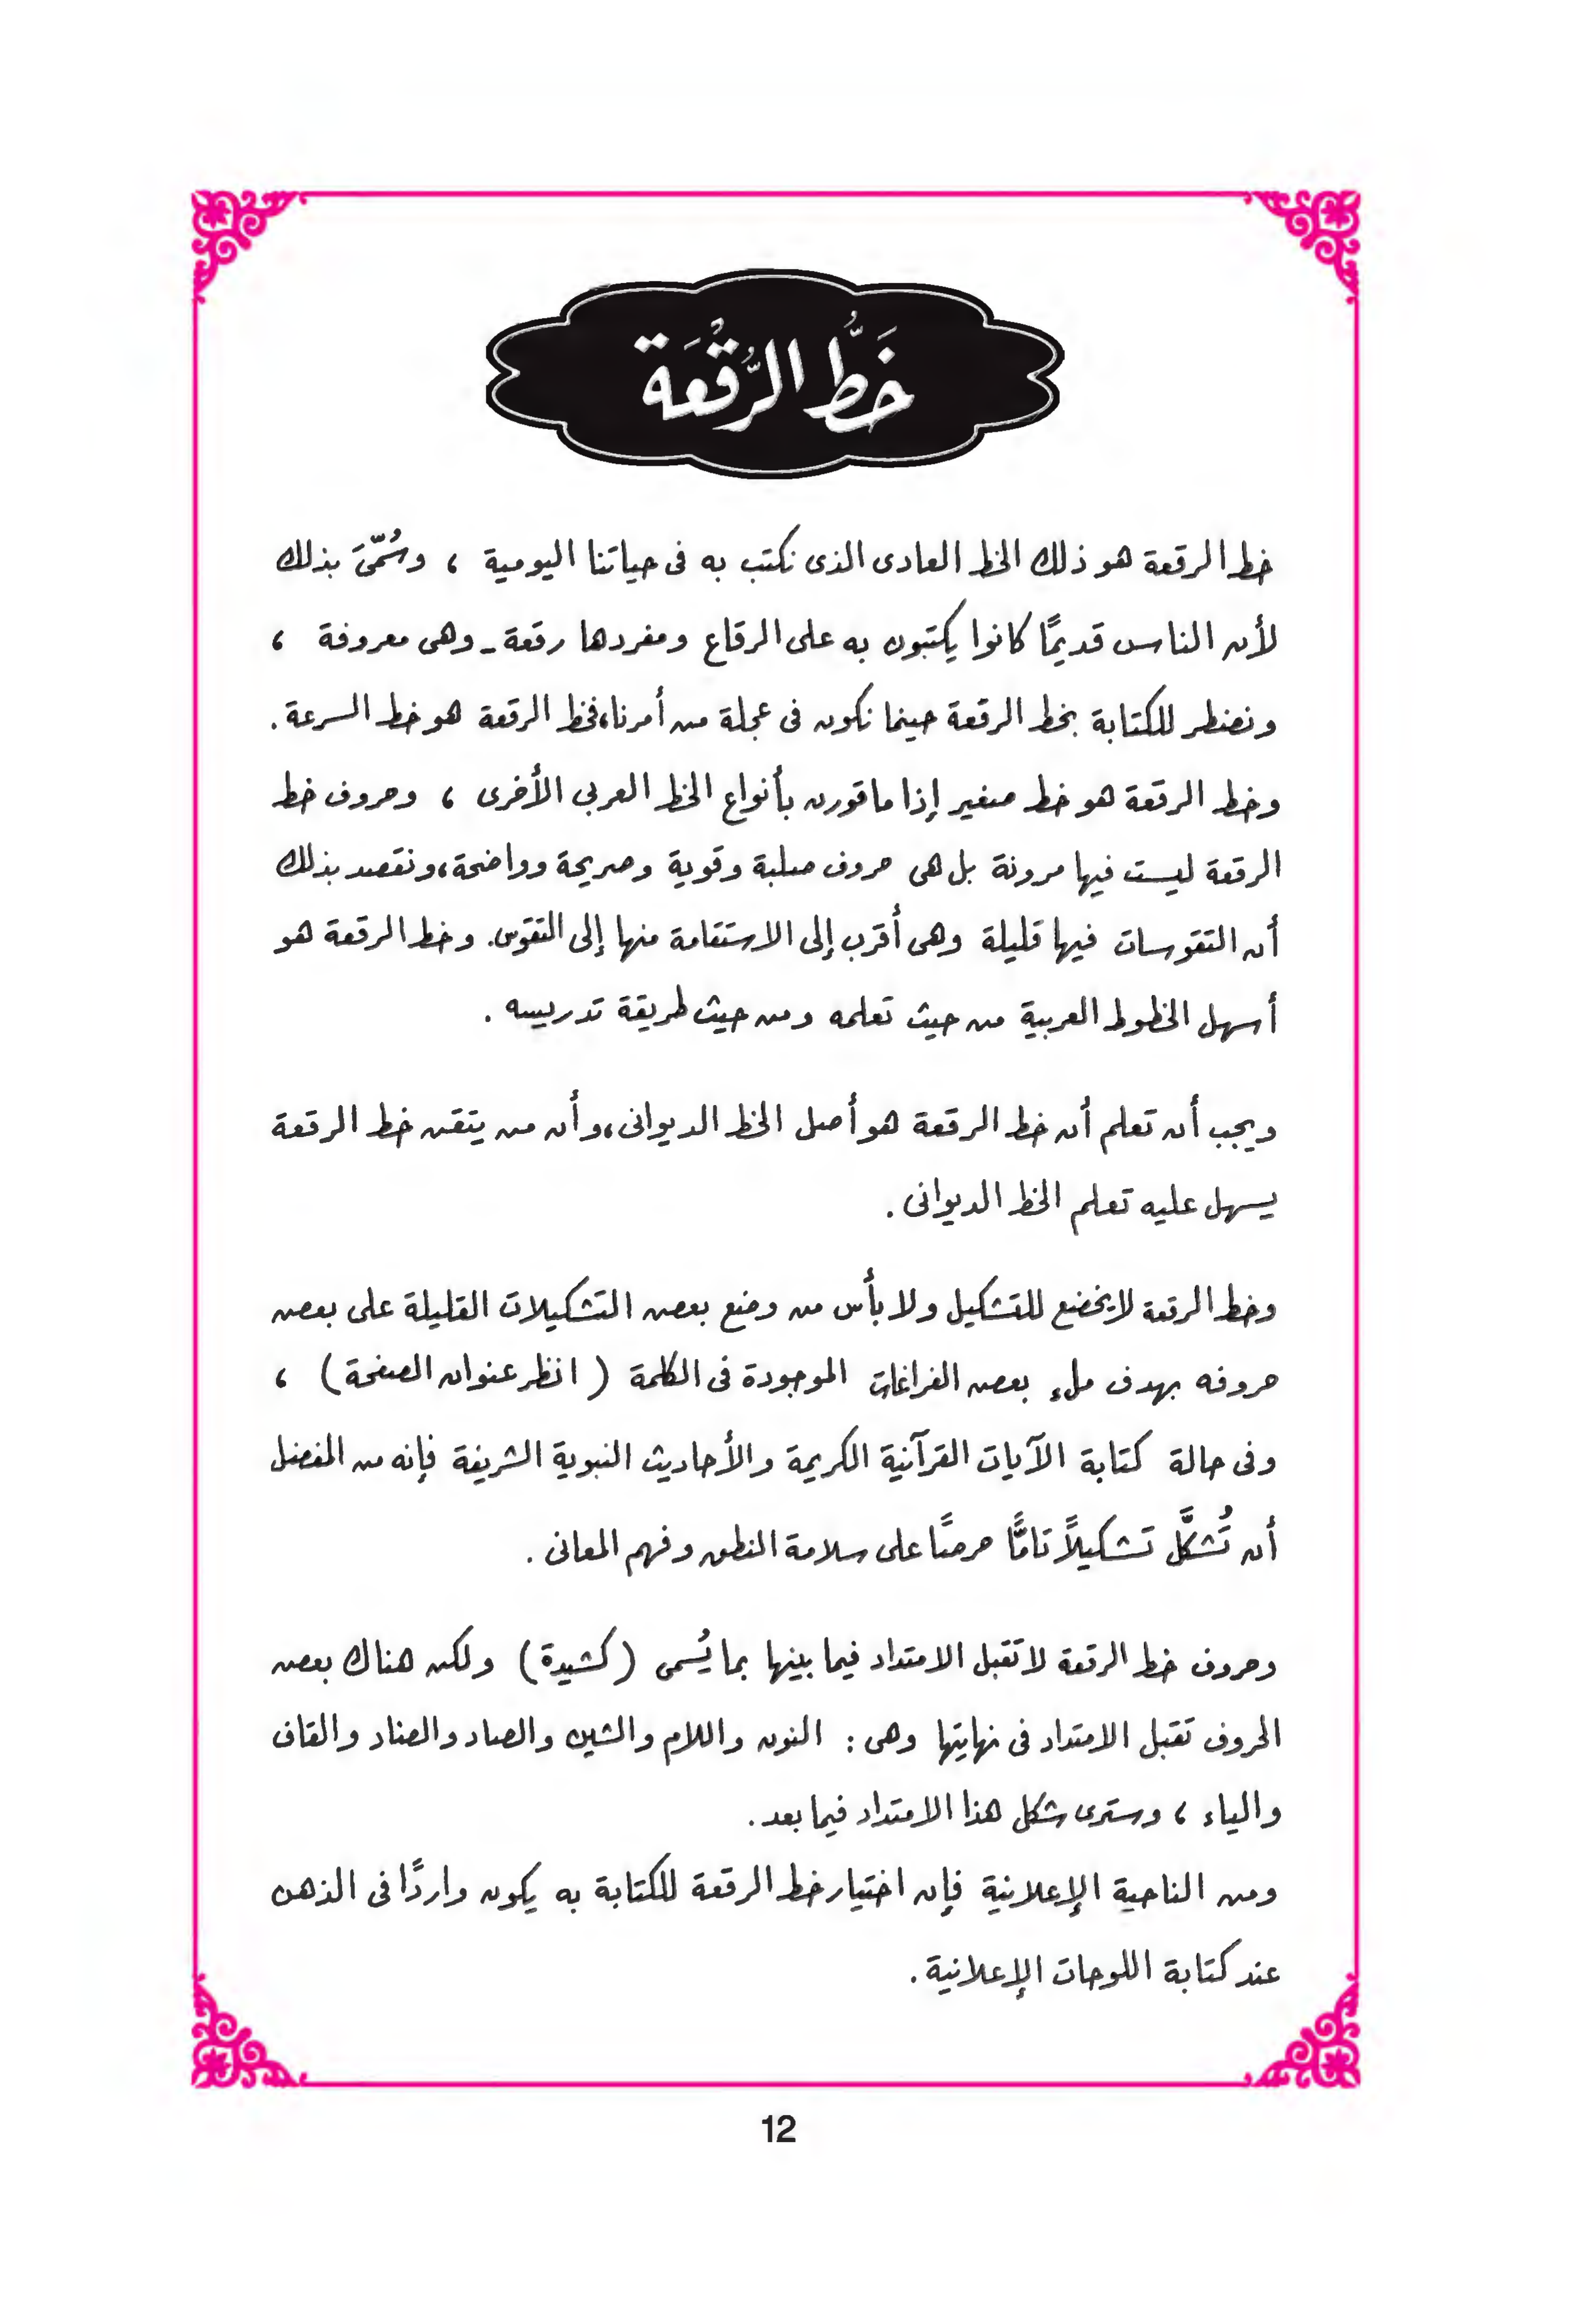 خَطُّ الرُّقْعَة
خط الرقعة هو ذلك الخط العادى الذى نكتب به فى حياتنا اليومية ، وسُمّىَ بذلك
لأن الناس قديمًا كانوا يكتبون به على الرقاع ومفردها رقعة - وهى معروفة ،
ونضطر للكتابة بخط الرقعة حينما نكون فى عجلة من أمرنا،فخط الرقعة هو خط السرعة .
وخط الرقعة هو خط صغير إذا ما قورن بأنواع الخط العربى الأخرى ، وحروف خط
الرقعة ليست فيها مرونة بل هى حروف صلبة وقوية وصريحة وواضحة،ونقصد بذلك
أن التقوسات فيها قليلة وهى أقرب إلى الاستقامة منها إلى التقوس. وخط الرقعة هو
أسهل الخطوط العربية من حيث تعلمه ومن حيث طريقة تدريسه .
ويجب أن تعلم أن خط الرقعة هو أصل الخط الديوانى،وأن من يتقن خط الرقعة
يسهل عليه تعلم الخط الديوانى .
وخط الرقعة لايخضع للتشكيل ولا بأس من وضع بعض التشكيلات القليلة على بعض
حروفه بهدف ملء بعض الفراغات الموجودة فى الكلمة ( انظر عنوان الصفحة ) ،
وفى حالة كتابة الآيات القرآنية الكريمة والأحاديث النبوية الشريفة فإنه من المفضل
أن تُشكَّل تشكيلاً تامًّا حرصًا على سلامة النطق وفهم المعانى .
وحروف خط الرقعة لا تقبل الامتداد فيما بينها بما يُسمى ( كشيدة ) ولكن هناك بعض
الحروف تقبل الامتداد فى نهايتها وهى : النون واللام والشين والصاد والضاد والقاف
والياء ، وسترى شكل هذا الامتداد فيما بعد .
ومن الناحية الإعلانية فإن اختيار خط الرقعة للكتابة به يكون واردًا فى الذهن
عند كتابة اللوحات الإعلانية .
12